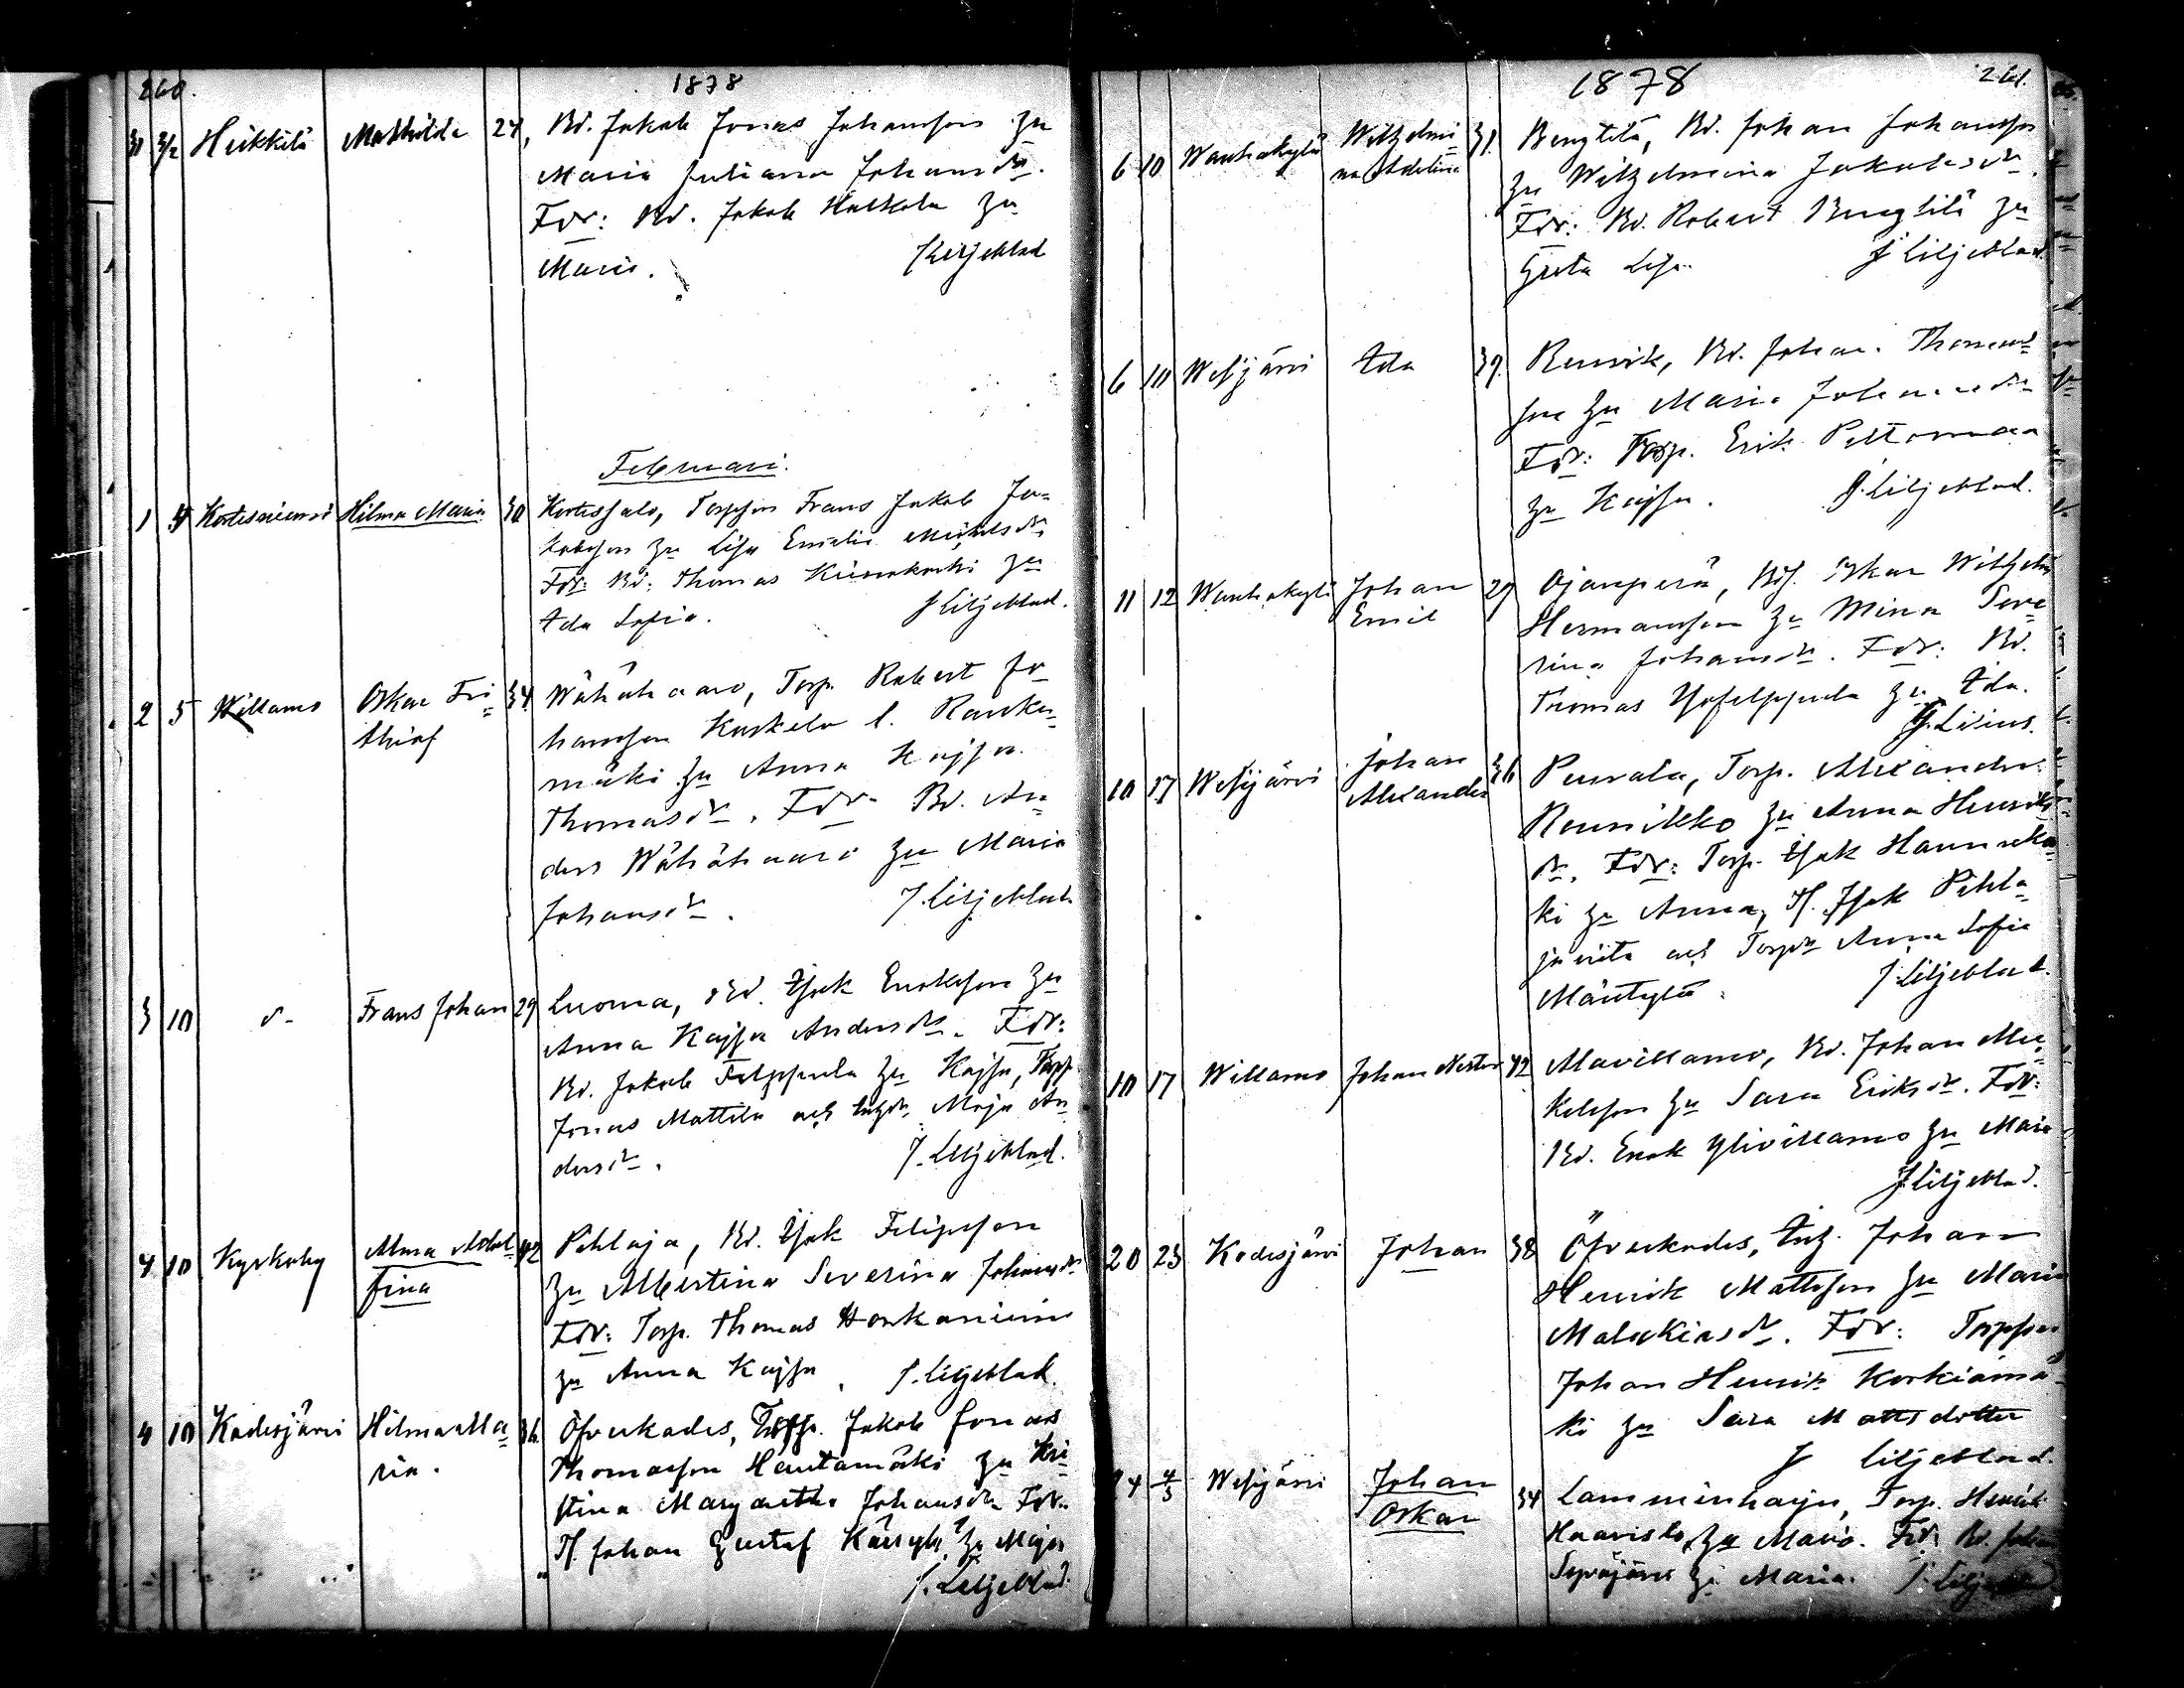 260.
1878
31 3/2 Heikkilä Mathilda 24, Bd. Jakob Jonas Johansson &
Maria Juliana Johansdr.
Fdr: Bd. Jakob Kaskela &
Maria. J Liljeblad
Februari.
1 4 Kortesniemi Hilma Maria 30 Kortessalo, Torpson Frans Jakob Ja=
kobsson & Lisa Emelia Michelsdr.
Fdr: Bd: Thomas &
Ida Sofia. J Liljeblad.
2 5 Willamo Oskar Fri= 34. Wähähaaro, Torp. Robert Jo
thiof hansson Kaskela l. Rauku=
mäki & Anna Kajsa
Thomasdr. Fdr. Bd. An=
ders Wähähaaro & Maria
Johansdr. J. Liljeblad.
3 10 d- Frans Johan 29 Luoma, Bd. Isak Enoksson &
Anna Kajsa Andersdr. Fdr:
Bd. Jakob Filppula & Kajsa, Torp.
Jonas Mattila och Inhdr. Maja An=
dersdr. J. Liljeblad.
4 10 Kyrkoby Alma Adol= 42 Pihlaja, Bd. Isak Filipsson
fina & Albertina Severina Johansdr
Fdr: Torp. Thomas Honkaniemi
& Anna Kajsa. J. Liljeblad.
4 10 Kodesjärvi Hilma Ma= 36. Öfverkodes, Torp. Jakob Jonas
ria. Thomasson Hautamäki & Kri=
stina Margaretha Johansdr. Fdr.
Johan Gustaf & Maja
J. Liljeblad.
1878
261.
6 10 Wanhakylä Wilhelmi= 31. Bengtilä, Bd. Johan Johansson
na Adelina & Wilhelmina Jakobsdr.
Fdr: Bd. Robert Bengtilä &
Greta Lisa. J Liljeblad.
6 10 Wesijärvi Ida 39. Renvik, Bd. Johan Thomas=
son & Maria Johansdr
Fdr: Torp. Erik Peltomaa
& Kajsa. J. Liljeblad.
11 12 Wanhakylä Johan 29 Ojanperä, Bds. Oskar Wilhelm
Emil Hermansson & Mina Seve=
rina Johansdr. Fdr: Bd.
Thomas Yrfelppula & Ida.
G. Lilius.
10 17 Wesijärvi Johan 36 Perrala, Torp. Alexander
Alexander Rennikko & Anna Henriks=
dr. Fdr: Torp. Isak Hannuka=
ki & Anna, Isak Pihla=
javiita och Torpdr. Anna Sofia
Mäntylä. J. Liljeblad.
10 17 Willamo Johan Nestor 42 Mavillamo, Bd. Johan Mic=
kelsson & Sara Eriksdr. Fdr:
Bd. Enok Ylivillamo & Maria
J Liljeblad.
20 23 Kodesjärvi Johan 38 Öfverkodes, Inh. Johan
Henrik Mattsson & Maria
Malakiasdr. Fdr: Torpson
Johan Henrik Korkiamä=
ki & Sara Mattsdotter
J Liljeblad.
24 4/3 Wesijärvi Johan 34 Lamminharju, Torp. Henrik
Oskar Haavisto & Maria. Fdr: Bd. Johan
Sepäjärvi & Maria. J. Liljeblad